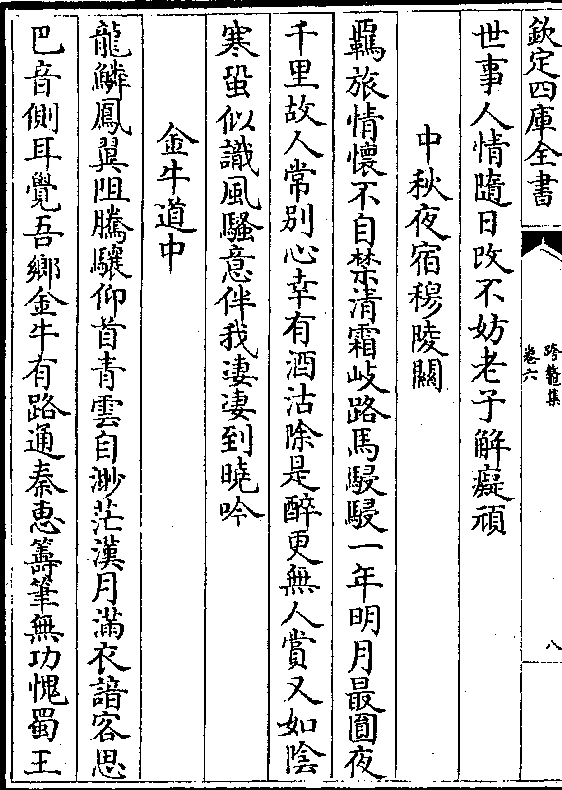 欽定四庫全書
跨鼇集
卷六
八
世事人情隨日改不妨老子解癡頑
中秋夜宿穆陵關
羈旅情懷不自禁清霜岐路馬駸駸一年明月最圓夜
千里故人常别心幸有酒沽除是醉更無人賞又如陰
寒蛩似識風騷意伴我凄凄到曉吟
金牛道中
龍鱗鳳翼阻騰驤仰首青雲自渺茫漢月滿衣諳客思
巴音側耳覺吾鄉金牛有路通秦惠籌筆無功愧蜀王